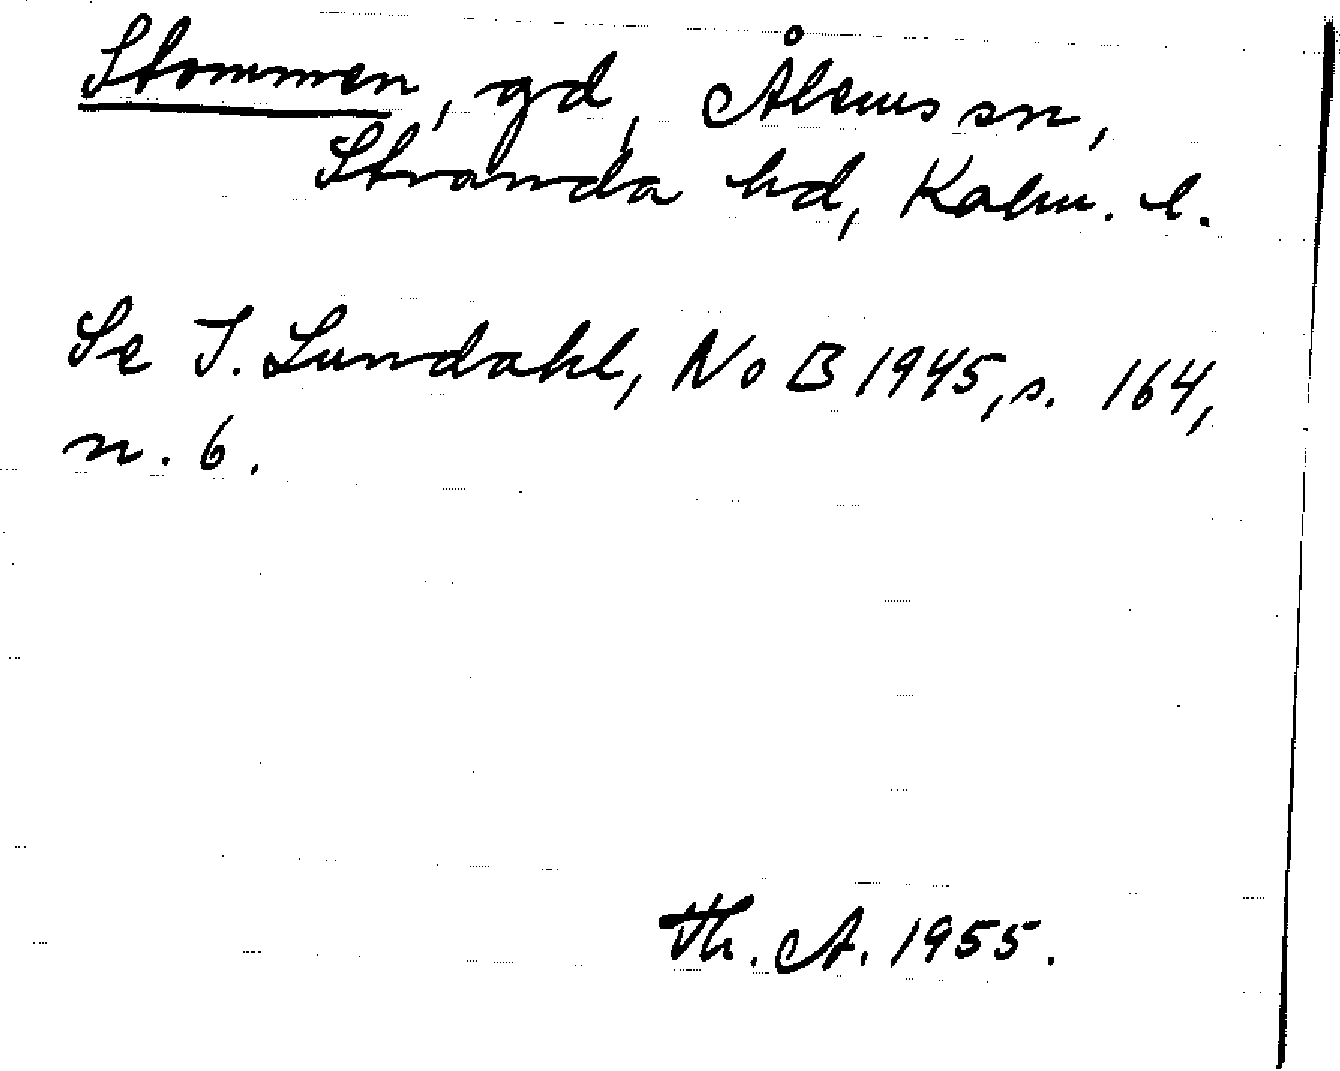 Stommen, gd, Ålems sn,
Stranda hd, Kalm. l.
Se I. Lundahl, No B 1945, s. 164,
n. 6.
Th. A. 1955.